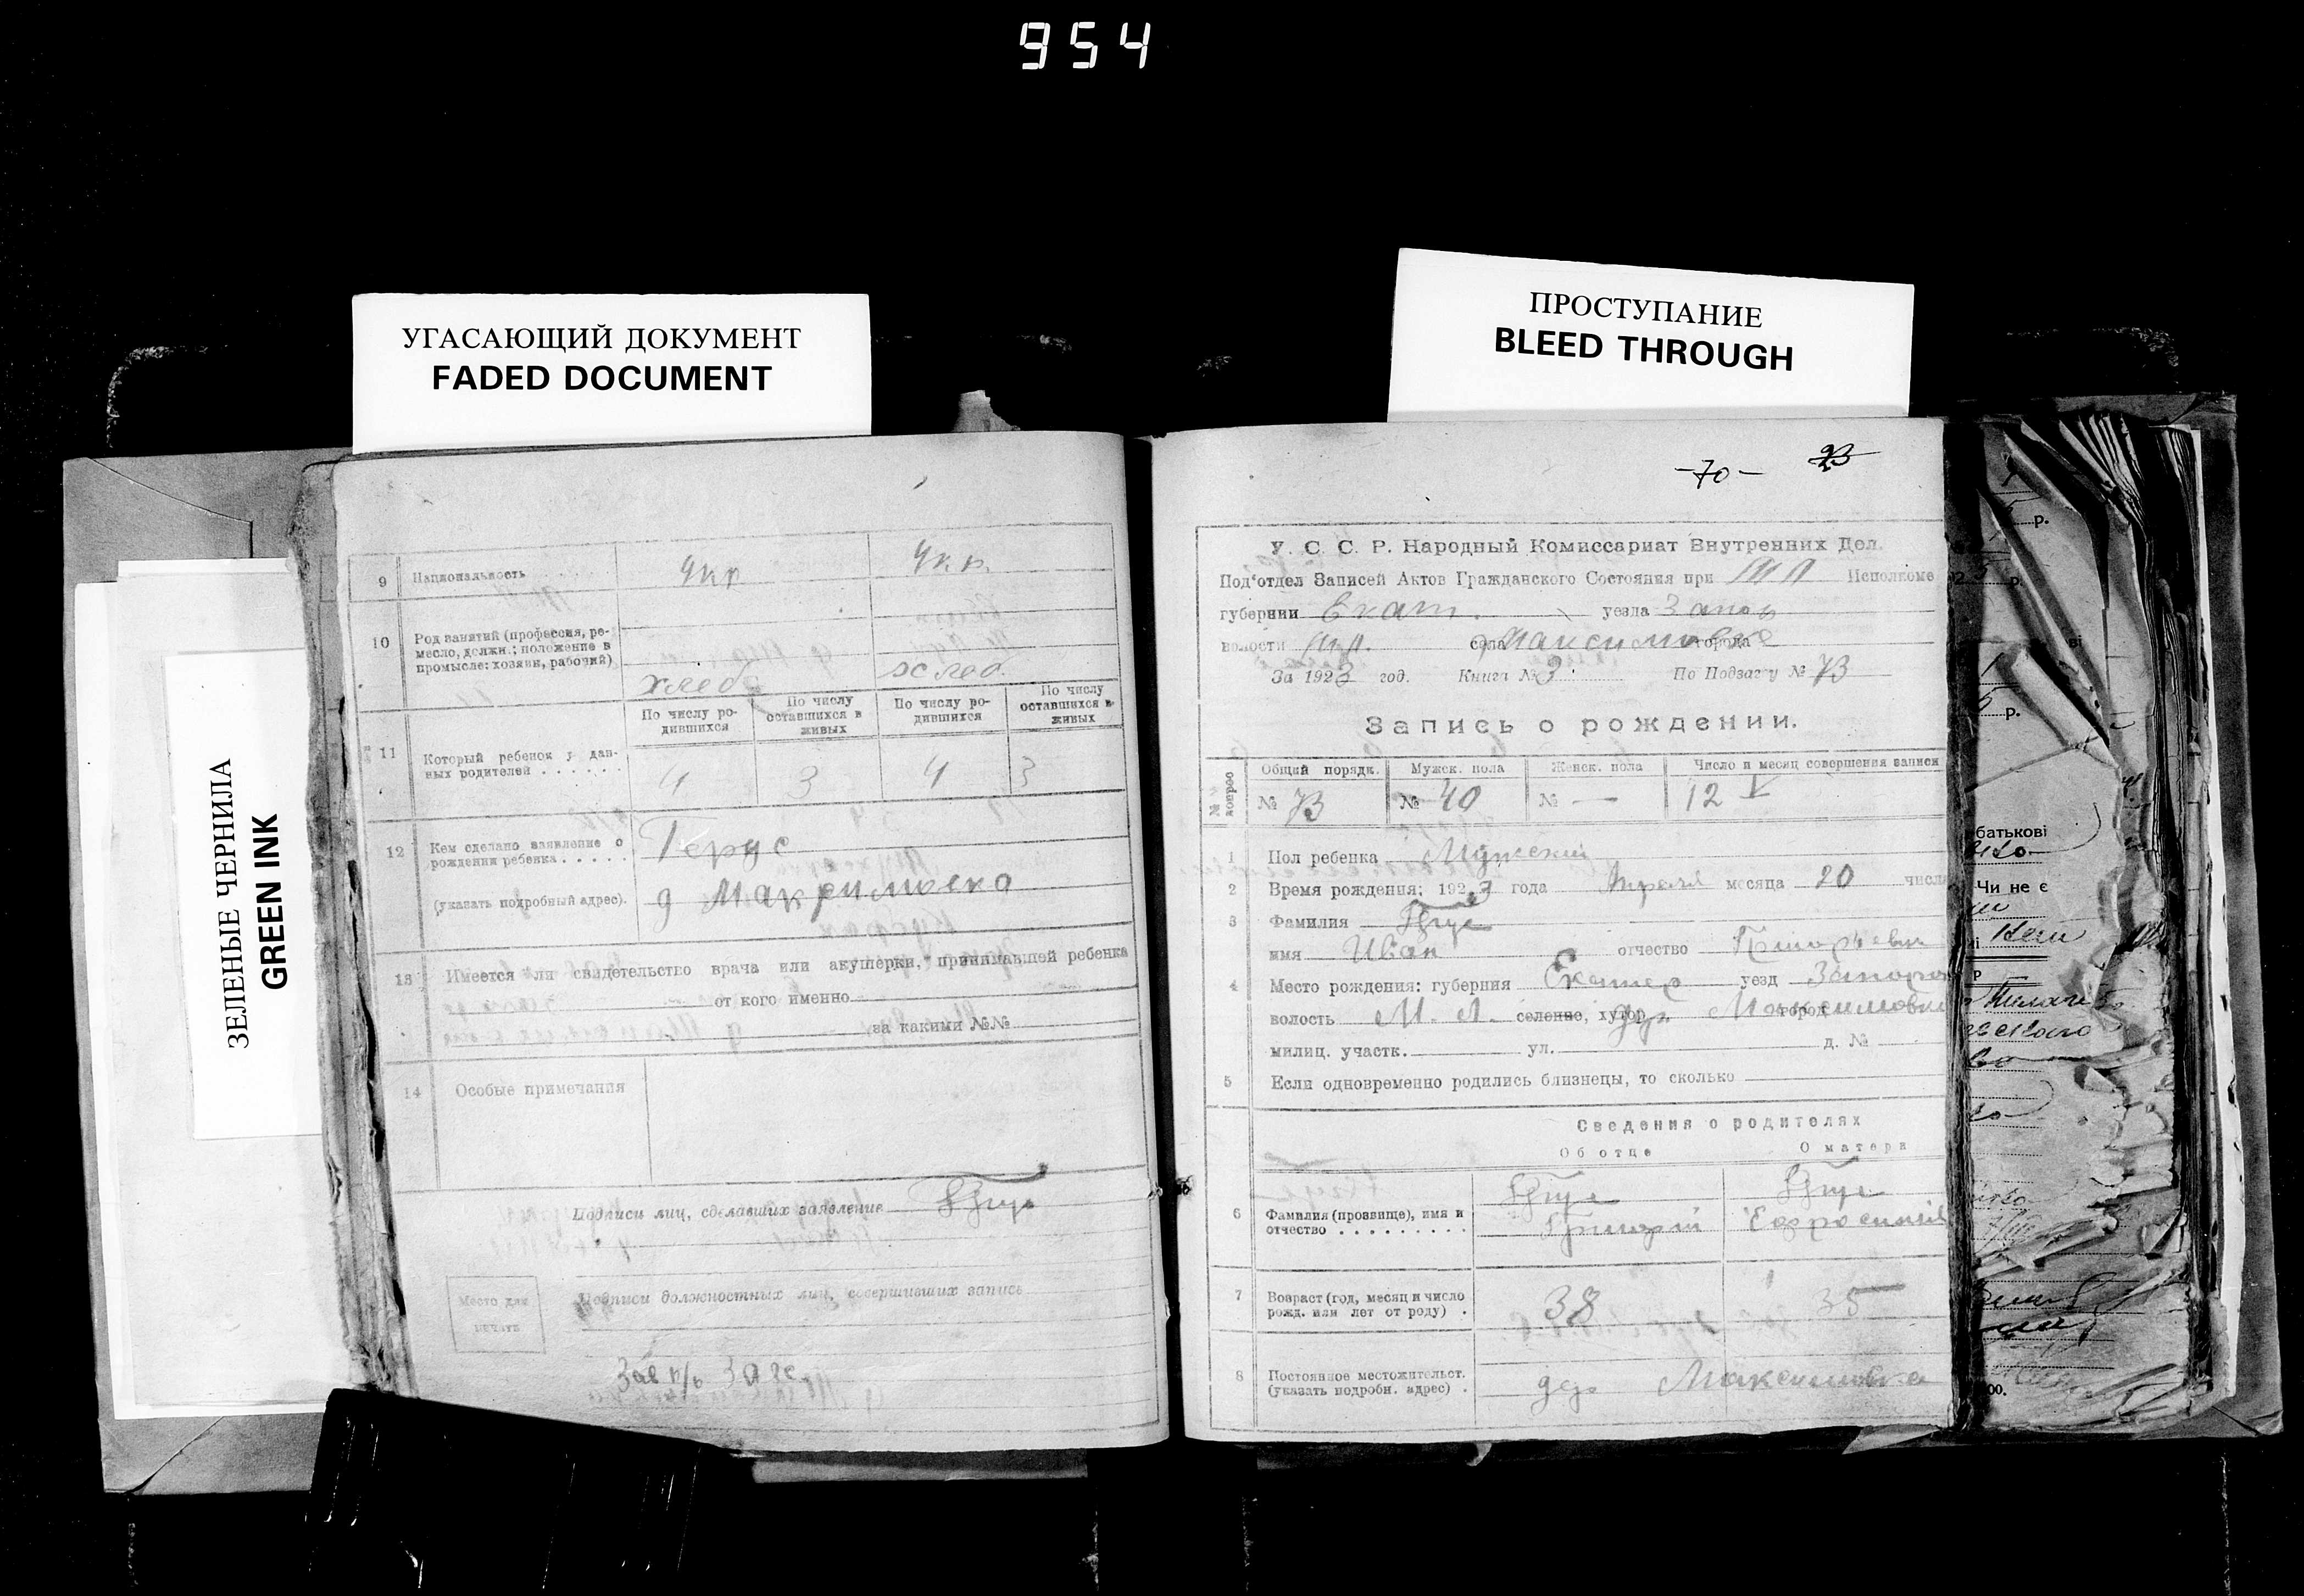 954
УГАСАЮЩИЙ ДОКУМЕНТ
FADED DOCUMENT
ПРОСТУПАНИЕ
BLEED THROUGH
ЗЕЛЕНЫЕ ЧЕРНИЛА
GREEN INK
9 Национальность Укр Укр.
10 Род занятий (профессия, ре-
месло, должн.; положение в
промысле: хозяин, рабочий) хлеб хлеб.
По числу ро-
дившихся
По числу
оставшихся в
живых
По числу ро-
дившихся
По числу
оставшихся в
живых
11 Который ребенок у дан-
ных родителей . . . . . . 4 3 4 3
12 Кем сделано заявление о
рождении ребенка . . . . . Герус
(указать подробный адрес). д
13 Имеется ли свидетельство врача или акушерки, принимавшей ребенка
от кого именно
за какими №№
14 Особые примечания
Подписи лиц, сделавших заявление
Место для
печати
Подписи должностных лиц, совершивших запись
Зав п/о Загс
-70- 23
У. С. С. Р. Народный Комиссариат Внутренних Дел.
Под'отдел Записей Актов Гражданского Состояния при Исполкоме
губернии Екат. уезда Запор
волости села Максимовке города
За 1923 год. Книга № 3 По Подзагу № 73
Запись о рождении.
№№ вопрос Общий порядк. Мужск. пола Женск. пола Число и месяц совершения записи
№ 73 № 40 № — 12 V
1 Пол ребенка Мужской
2 Время рождения: 1923 года Апреля месяца 20 числа
3 Фамилия Герус
имя Иван отчество Григорьевич
4 Место рождения: губерния Екатер уезд Запорож
волость М. Л. селение, хутор дер. Максимовки город
милиц. участк. ул. д. №
5 Если одновременно родились близнецы, то сколько
Сведения о родителях
Об отце О матери
6 Фамилия (прозвище), имя и
отчество . . . . . . . . . Герус Герус
Григорий Ефросиния
7 Возраст (год, месяц и число
рожд. или лет от роду) . 38 35
8 Постоянное местожительст.
(указать подробн. адрес) . дер Максимовка
р.
р.
р.
батькові
Чи не є